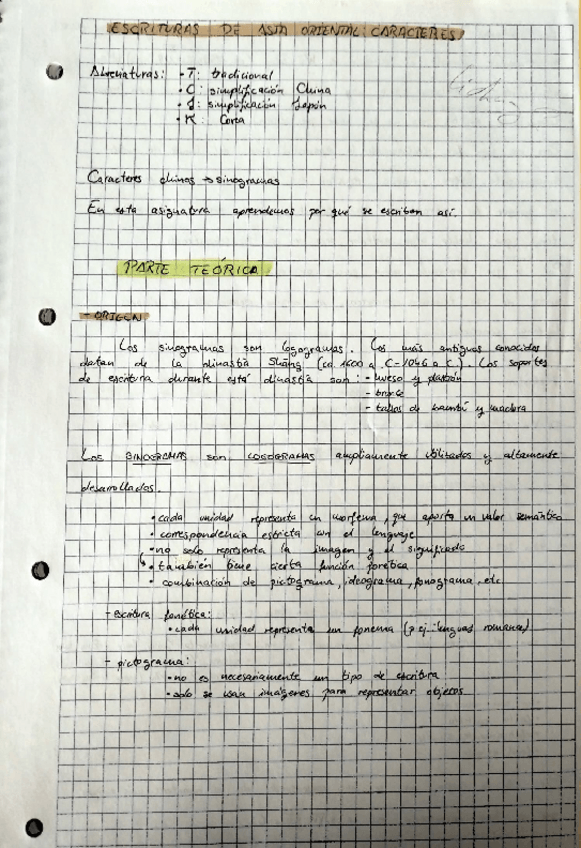 ESCRITURAS DE ASIA ORIENTAL: CARACTERES
Abreviaturas: · T: tradicional
· C: simplificación China
· J: simplificación Japón
· K: Corea
Caracteres chinos → sinogramas
En esta asignatura aprendemos por qué se escriben así.
PARTE TEÓRICA
- ORIGEN
Los sinogramas son logogramas. Los más antiguos conocidos
datan de la dinastía Shāng (ca. 1600 a. C-1046 a C.). Los soportes
de escritura durante está dinastía son: - hueso y plastrón
- bronce
- tablas de bambú y madera
Los SINOGRAMAS son LOGOGRAMAS ampliamente utilizados y altamente
desarrollados.
· cada unidad representa un morfema, que aporta un valor semántico
· correspondencia estricta con el lenguaje
· no solo representa la imagen y el significado
↳ · también tiene cierta función fonética
· combinación de pictograma, ideograma, fonograma, etc
- Escritura fonética:
· cada unidad representa un fonema (p ej.: lenguas romances)
- pictograma:
· no es necesariamente un tipo de escritura
· solo se usan imágenes para representar objetos